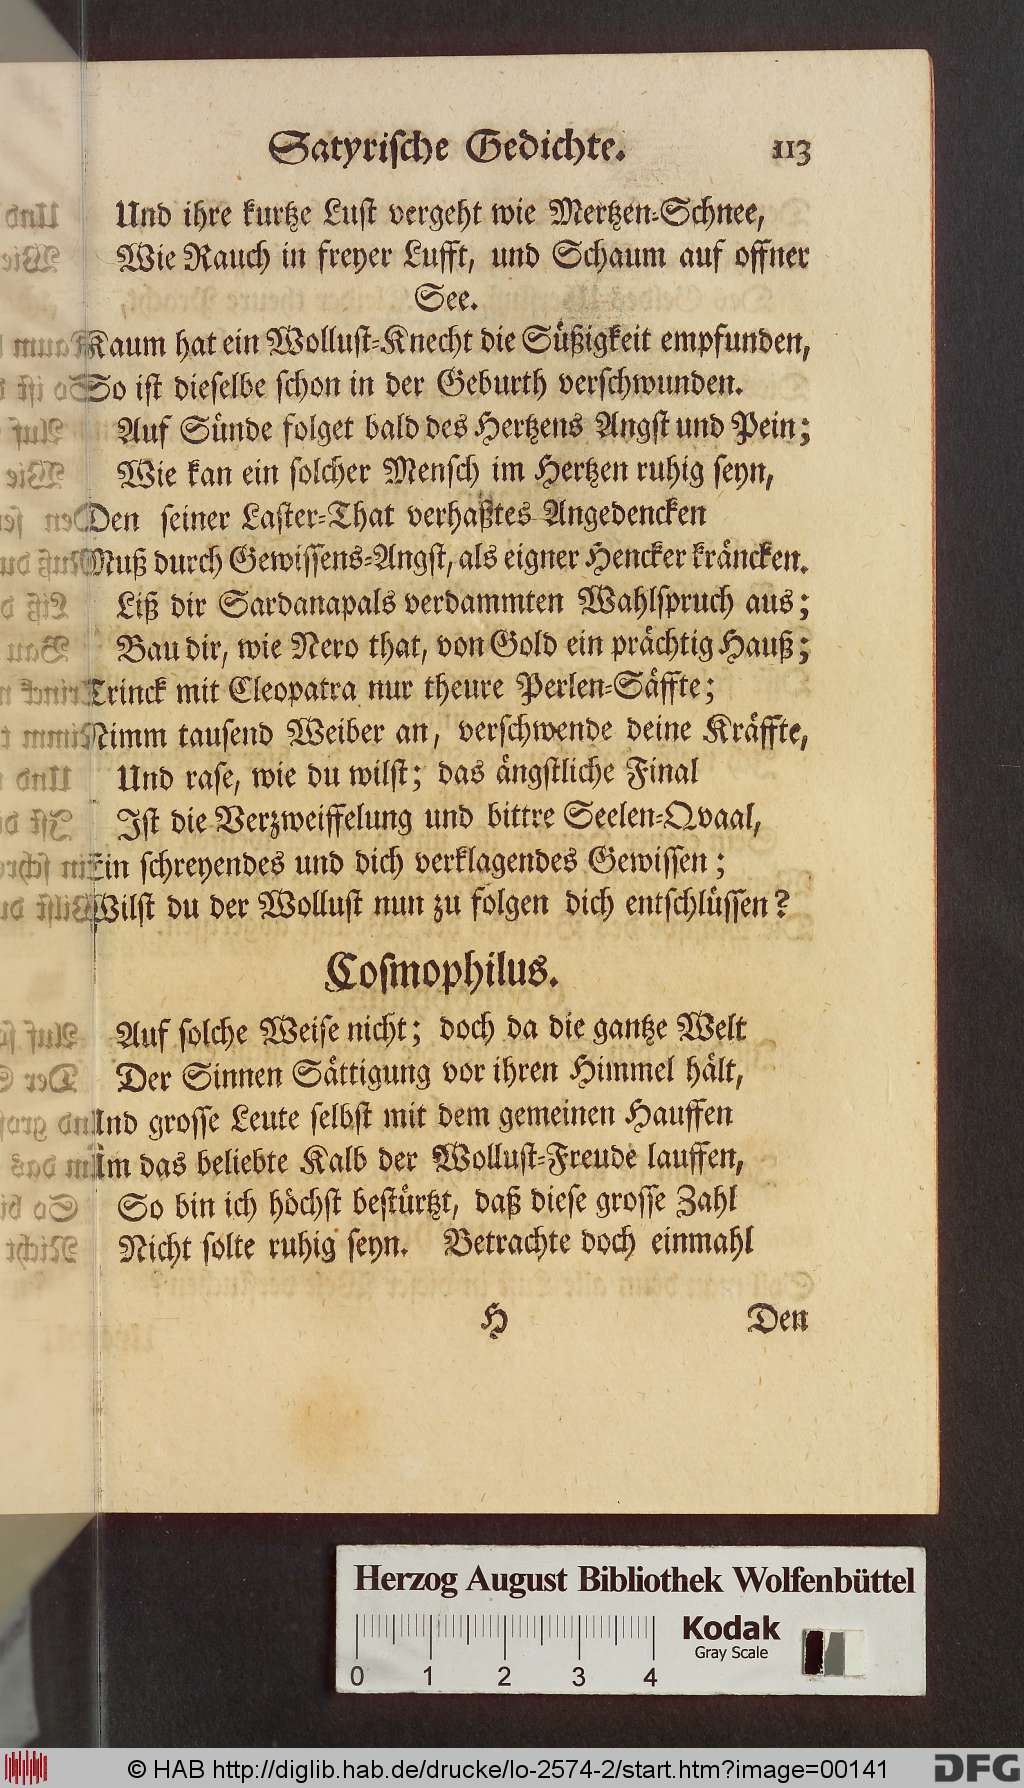 Satyrische Gedichte. 113
Und ihre kurtze Lust vergeht wie Mertzen-Schnee,
Wie Rauch in freyer Lufft, und Schaum auf offner
See.
Kaum hat ein Wollust-Knecht die Süßigkeit empfunden,
So ist dieselbe schon in der Geburth verschwunden.
Auf Sünde folget bald des Hertzens Angst und Pein;
Wie kan ein solcher Mensch im Hertzen ruhig seyn,
Den seiner Laster-That verhaßtes Angedencken
Muß durch Gewissens-Angst, als eigner Hencker kräncken.
Liß dir Sardanapals verdammten Wahlspruch aus;
Bau dir, wie Nero that, von Gold ein prächtig Hauß;
Trinck mit Cleopatra nur theure Perlen-Säffte;
Nimm tausend Weiber an, verschwende deine Kräffte,
Und rase, wie du wilst; das ängstliche Final
Ist die Verzweiffelung und bittre Seelen-Qvaal,
Ein schreyendes und dich verklagendes Gewissen;
Wilst du der Wollust nun zu folgen dich entschlüssen?
Cosmophilus.
Auf solche Weise nicht; doch da die gantze Welt
Der Sinnen Sättigung vor ihren Himmel hält,
Und grosse Leute selbst mit dem gemeinen Hauffen
Um das beliebte Kalb der Wollust-Freude lauffen,
So bin ich höchst bestürtzt, daß diese grosse Zahl
Nicht solte ruhig seyn. Betrachte doch einmahl
H Den
Herzog August Bibliothek Wolfenbüttel
Kodak
Gray Scale
0 1 2 3 4
© HAB http://diglib.hab.de/drucke/lo-2574-2/start.htm?image=00141 DFG